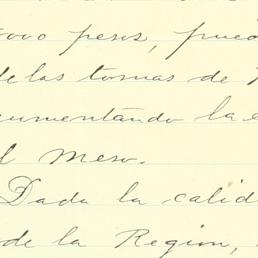 000 pesos, pued
de las tomas de
aumentando la e
el meso.
Dada la calid
de la Region,